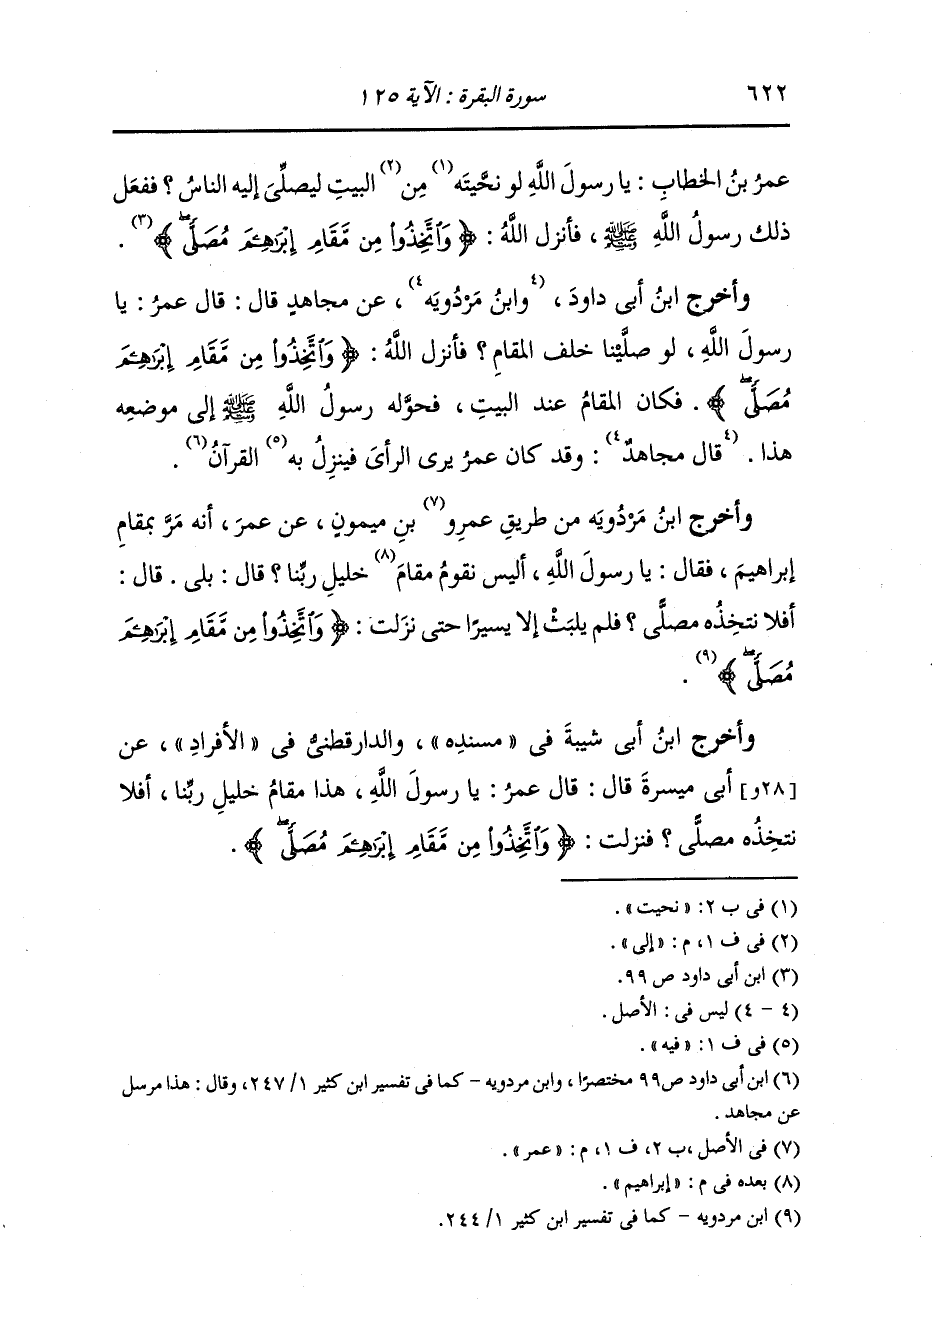 ٦٢٢ سورة البقرة : الآية ١٢٥
عمرُ بنُ الخطابِ : يا رسولَ اللَّهِ لو نحَّيتَه(١) مِن(٢) البيتِ ليصلِّىَ إليه الناسُ ؟ ففعَل
ذلك رسولُ اللَّهِ ﷺ ، فأنزل اللَّهُ : ﴿ وَٱتَّخِذُوا۟ مِن مَّقَامِ إِبْرَٰهِـۧمَ مُصَلًّىۖ ﴾(٣) .
وأخرج ابنُ أبى داودَ ، (٤وابنُ مَرْدُويَه٤) ، عن مجاهدٍ قال : قال عمرُ : يا
رسولَ اللَّهِ ، لو صلَّيْنا خلف المقامِ ؟ فأنزل اللَّهُ : ﴿ وَٱتَّخِذُوا۟ مِن مَّقَامِ إِبْرَٰهِـۧمَ
مُصَلًّىۖ ﴾ . فكان المقامُ عند البيتِ ، فحوَّله رسولُ اللَّهِ ﷺ إلى موضعِه
هذا . (٤قال مجاهدٌ٤) : وقد كان عمرُ يرى الرأىَ فينزِلُ به(٥) القرآنُ(٦) .
وأخرج ابنُ مَرْدُويَه من طريقِ عمرِو(٧) بنِ ميمونٍ ، عن عمرَ ، أنه مَرَّ بمقامِ
إبراهيمَ ، فقال : يا رسولَ اللَّهِ ، أليس نقومُ مقامَ(٨) خليلِ ربِّنا ؟ قال : بلى . قال :
أفلا نتخِذُه مصلًّى ؟ فلم يلبَثْ إلا يسيرًا حتى نزَلت : ﴿ وَٱتَّخِذُوا۟ مِن مَّقَامِ إِبْرَٰهِـۧمَ
مُصَلًّىۖ ﴾(٩) .
وأخرج ابنُ أبى شيبةَ فى « مسندِه » ، والدارقطنىُّ فى « الأفرادِ » ، عن
[٢٨و] أبى ميسرةَ قال : قال عمرُ : يا رسولَ اللَّهِ ، هذا مقامُ خليلِ ربِّنا ، أفلا
نتخِذُه مصلًّى ؟ فنزلت : ﴿ وَٱتَّخِذُوا۟ مِن مَّقَامِ إِبْرَٰهِـۧمَ مُصَلًّىۖ ﴾ .
(١) فى ب ٢: « نحيت » .
(٢) فى ف ١، م : « إلى » .
(٣) ابن أبى داود ص ٩٩.
(٤ - ٤) ليس فى : الأصل .
(٥) فى ف ١: « فيه » .
(٦) ابن أبى داود ص٩٩ مختصرًا ، وابن مردويه - كما فى تفسير ابن كثير ١/ ٢٤٧، وقال : هذا مرسل
عن مجاهد .
(٧) فى الأصل ،ب ٢، ف ١، م : « عمر » .
(٨) بعده فى م : « إبراهيم » .
(٩) ابن مردويه - كما فى تفسير ابن كثير ١/ ٢٤٤.